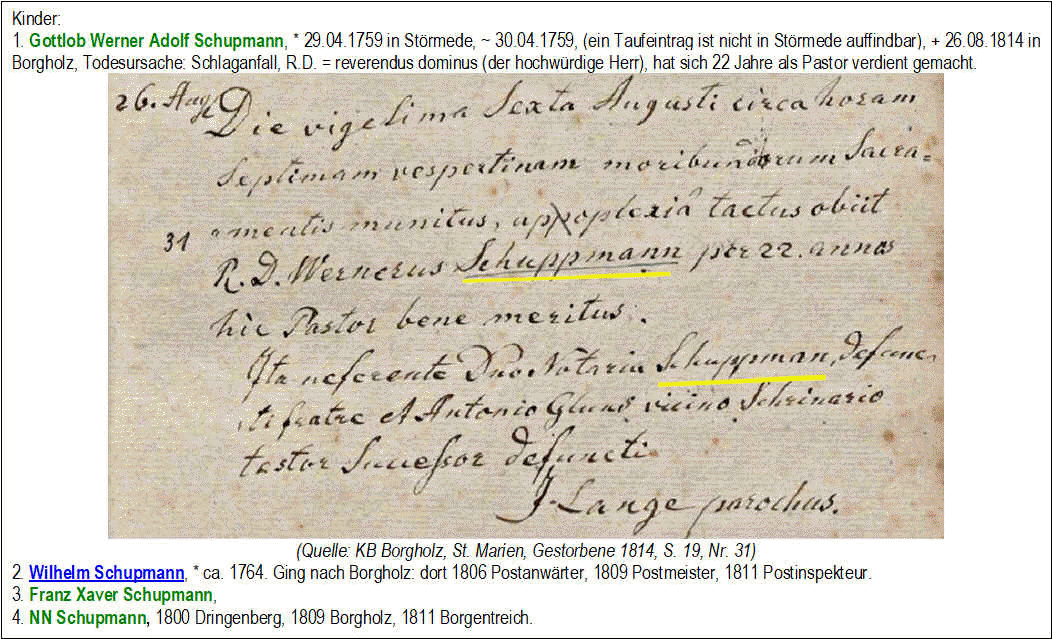 Kinder:
1. Gottlob Werner Adolf Schupmann, * 29.04.1759 in Störmede, ~ 30.04.1759, (ein Taufeintrag ist nicht in Störmede auffindbar), + 26.08.1814 in
Borgholz, Todesursache: Schlaganfall, R.D. = reverendus dominus (der hochwürdige Herr), hat sich 22 Jahre als Pastor verdient gemacht.
26. Aug Die vigesima Sexta Augusti circa horam
Septimam vespertinam moribundorum Sacra=
mentis munitus, appoplexiâ tactus obiit
31 R. D. Wernerus Schuppmann per 22. annos
hic Pastor bene meritus.
Ita referente Dno Notario Schuppman, defunc
ti fratre et Antonio Gluns vicino Schrinario
testor Successor defuncti
J. Lange parochus.
(Quelle: KB Borgholz, St. Marien, Gestorbene 1814, S. 19, Nr. 31)
2. Wilhelm Schupmann, * ca. 1764. Ging nach Borgholz: dort 1806 Postanwärter, 1809 Postmeister, 1811 Postinspekteur.
3. Franz Xaver Schupmann,
4. NN Schupmann, 1800 Dringenberg, 1809 Borgholz, 1811 Borgentreich.